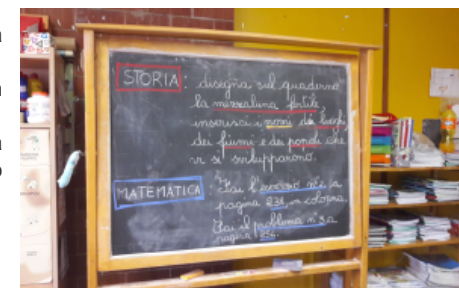 STORIA: disegna sul quaderno
la mezzaluna fertile,
inserisci i nomi dei luoghi,
dei fiumi e dei popoli che
vi si svilupparono.
MATEMATICA: Fai l'esercizio n°2 a
pagina 231, in colonna.
Fai il problema n°3 a
pagina